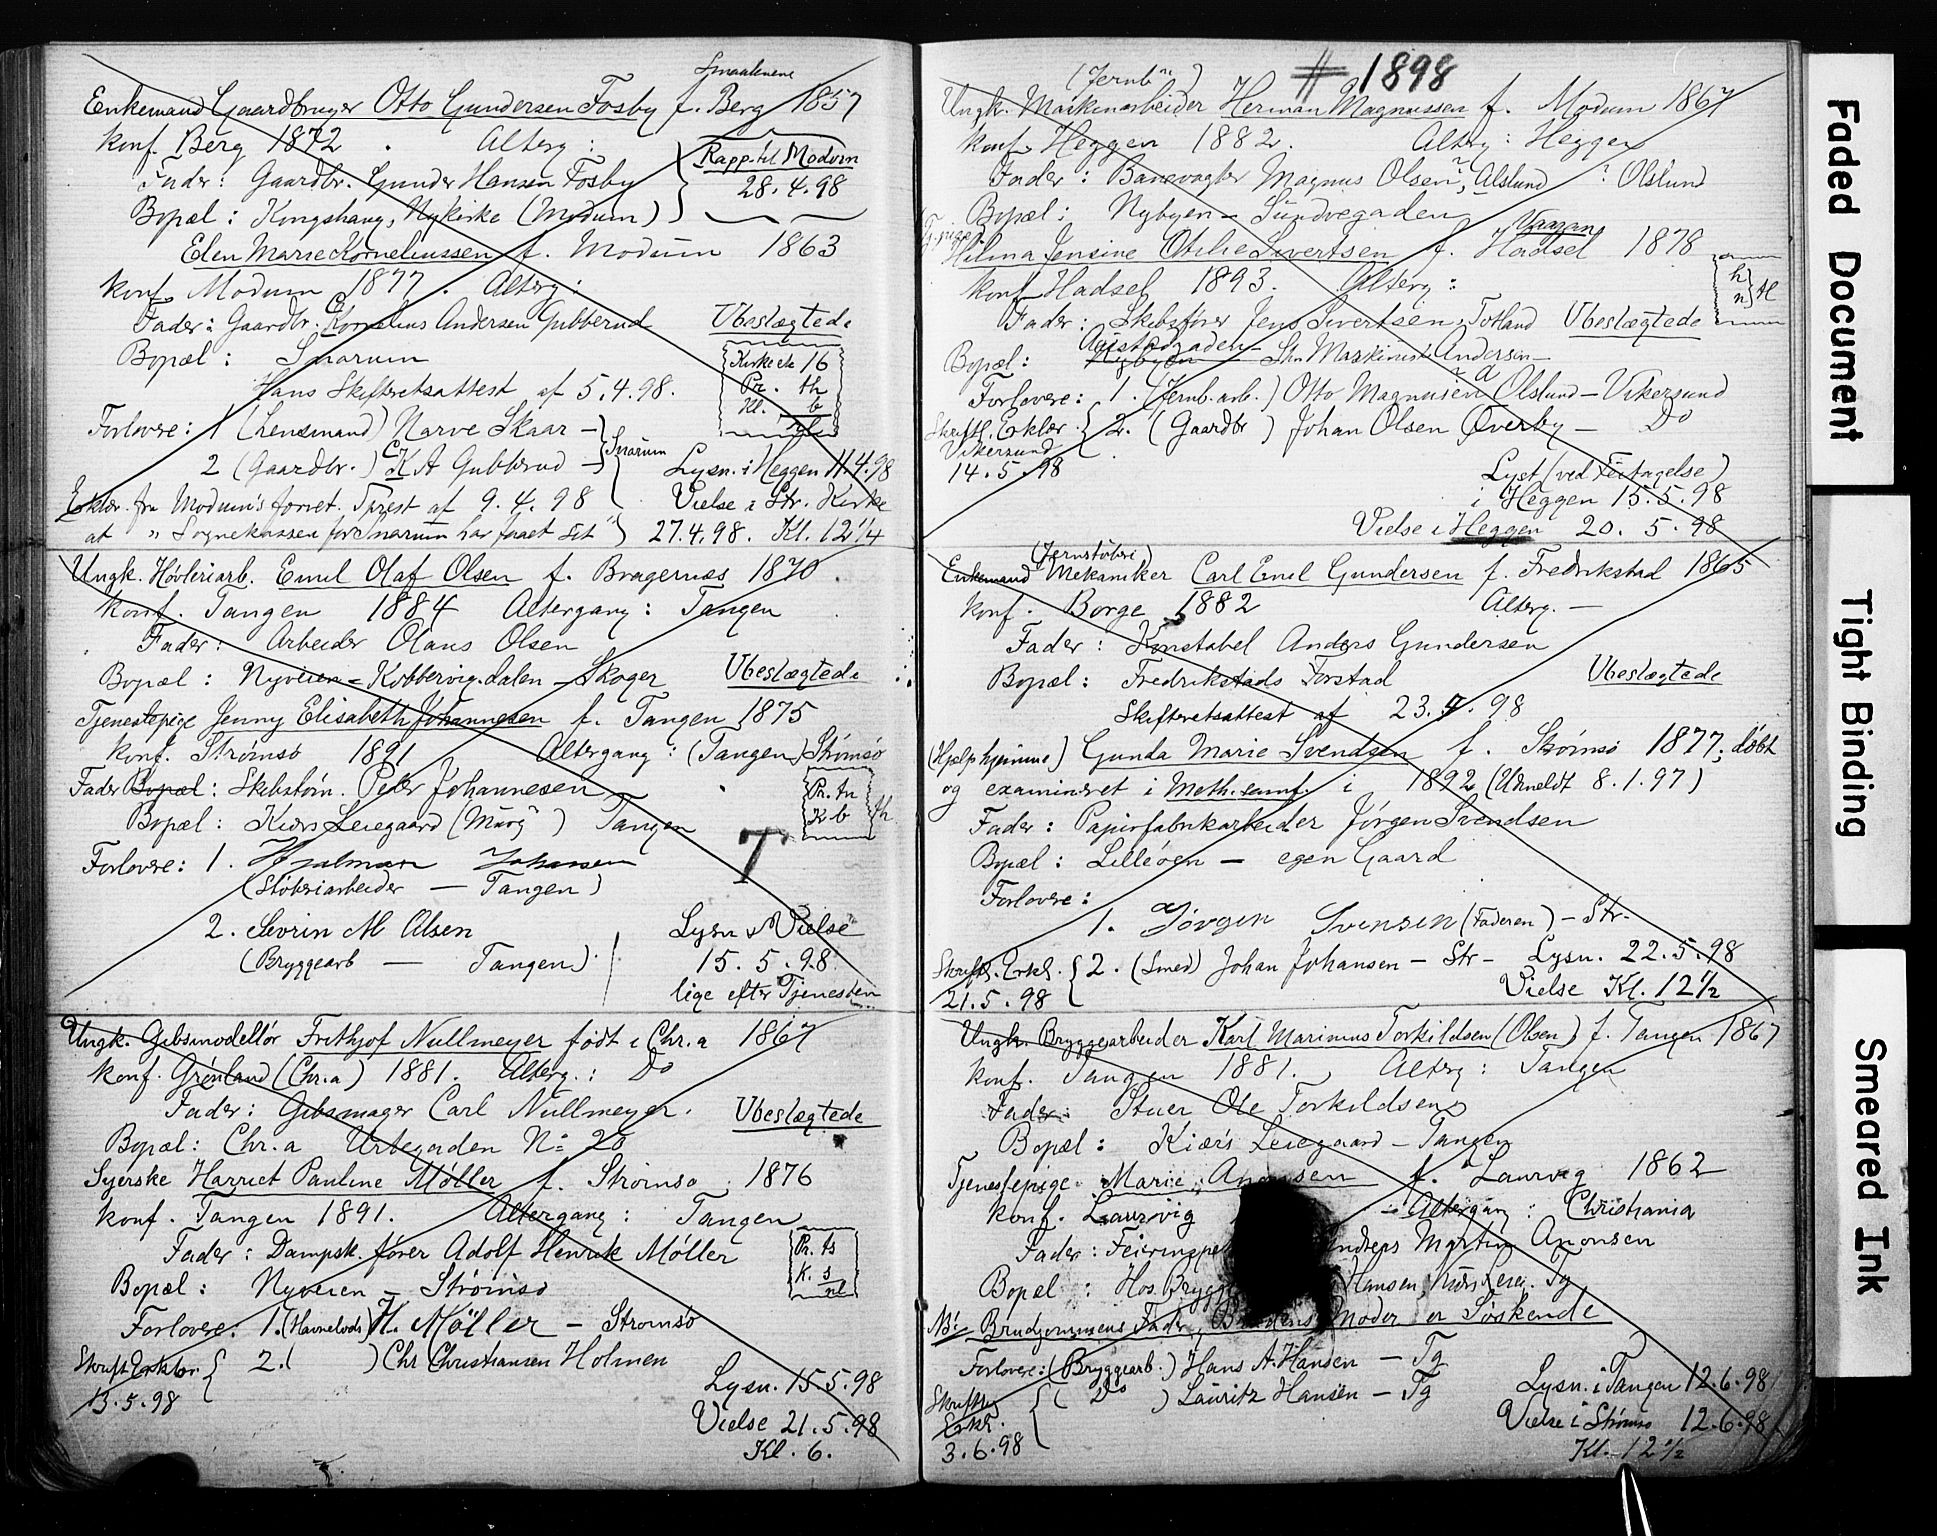 Smaalenene
Enkemand Gaardbruger Otto Gundersen Fosby f. Berg 1857
konf. Berg 1872. Alterg:
Fader: Gaardbr. Gunder Hansen Fosby
Rapp. til Modum
28.4.98
Bopæl: Kongshaug, Nykirke (Modum)
Elen Marie Korneliussen f. Modum 1863
konf. Modum 1877. Alterg:
Fader: Gaardbr. Kornelius Andersen Gubberud Ubeslægtede
Bopæl: Snarum
Kirkeeb 16
Pr. th
Kl. b
Hans Skifteretsattest af 5.4.98.
Forlovere: 1 (Lensmand) Narve Skaar –
2 (Gaardbr.) K A Gubberud – Snarum
Lysn. i Heggen 11.4.98
Erklær. fra Modum's forret. Sprest af 9.4.98
Vielse i Str. Kirke
at "Sognekassen for Snarum har faaet sit"
27.4.98. Kl. 12 1/4
Ungk. Høvleriarb. Emil Olaf Olsen f. Bragernæs 1870.
konf. Tangen 1884 Altergang: Tangen
Fader: Arbeider Olaus Olsen
Bopæl: Nyveien – Kobbervig.dalen – Skoger Ubeslægtede
Tjenestepige Jenny Elisabeth Johannesen f. Tangen 1875
konf. Strømsø 1891 Altergang: (Tangen) Strømsø
Fader Bopæl: Skibstøm. Peder Johannesen
Pr. tn
K b
th
Bopæl: Kiærs Leiegaard (Murg) Tangen
T
Forlovere: 1. Hjalmar Johansen
(Støberiarbeider – Tangen)
2. Sevrin M Olsen
(Bryggearb – Tangen)
Lysn & Vielse
15.5.98
lige efter Tjenesten
Ungk. Gibsmodellør Frithjof Nullmeyer født i Chr.a 1867
konf. Grønland (Chr.a) 1881. Alterg.: Do
Fader: Gibsmager Carl Nullmeyer.
Ubeslægtede
Bopæl: Chr.a Urtegaden No 20
Syerske Harriet Pauline Møller f. Strømsø 1876
konf. Tangen 1891. Altergang: Tangen
Fader: Dampsk. fører Adolf Henrik Møller
Pr. ts
K. s
nl
Bopæl: Nyveien – Strømsø
Forlovere: 1. (Havnelods) H. Møller – Strømsø
Skriftl. Erklær. 2. ( ) Chr Christiansen Holmen
13.5.98
Lysn. 15.5.98
Vielse 21.5.98
Kl. 6.
# 1898
(Jernb)
Ungk. Maskinarbeider Herman Magnussen f. Modum 1867
konf. Heggen 1882. Alterg: Heggen
Fader: Banevogter Magnus Olsen, Alslund ? Olslund
Bopæl: Nybyen – Sundvegaden
Vaagan
Hilma Jensine Otilie Sivertsen f. Hadsel 1878
konf. Hadsel 1893. Alterg:
h
n
tl
Fader: Skibsfører Jens Sivertsen, Totland Ubeslægtede
Bopæl: Nybyen – Str. Maskinist Andersen –
Forlovere: 1. (Jernb. arb.) Otto Magnusen Olslund – Vikersund
Skriftl. Erklær 2. (Gaardbr) Johan Olsen Øverby – Do
Vikersund
14.5.98
Lyst (ved Feitagelse)
i Heggen 15.5.98
Vielse i Heggen 20.5.98
(Jernstøberi)
Enkemand Mekaniker Carl Emil Gundersen f. Fredrikstad 1865
konf. Borge 1882 Alterg. –
Fader: Konstabel Anders Gundersen
Bopæl: Fredrikstads Forstad Ubeslægtede
Skifteretsattest af 23.4.98
(Hjælphjemme) Gunda Marie Svendsen f. Strømsø 1877, døbt
og examineret i Meth. samf. i 1892 (Udmeldt 8.1.97)
Fader: Papirfabrikarbeider Jørgen Svendsen
Bopæl: Lilleøen – egen Gaard
Forlovere:
1. Jörgen Svensen (Faderen) – Str.
Skriftl. Erkl. 2. (Smed) Johan Johansen – Str – Lysn. 22.5.98
21.5.98
Vielse Kl. 12 1/2
Ungk. Bryggearbeider Karl Marinius Torkildsen (Olsen) f. Tangen 1867
konf. Tangen 1881. Alterg: Tangen
Fader: Stuer Ole Torkildsen
Bopæl: Kiær's Leiegaard – Tangen
Tjenestepige Marie f. Laurvig 1862
konf. Laurvig Altergang: Christiania
Fader: Martin Anonsen
Bopæl: Hos Hansen, Kiærs Leieg. Tg
NB: Brudgommens Fader, Brudens Moder er Søskende
Forlovere: (Bryggearb.) Hans A. Hansen – Tg
Skriftl. ( Do ) Lauritz Hansen – Tg
Erkl.
3.6.98
Lysn. i Tangen 12.6.98
Vielse i Strømsø 12.6.98
Kl. 12 1/2
Faded Document
Tight Binding
Smeared Ink